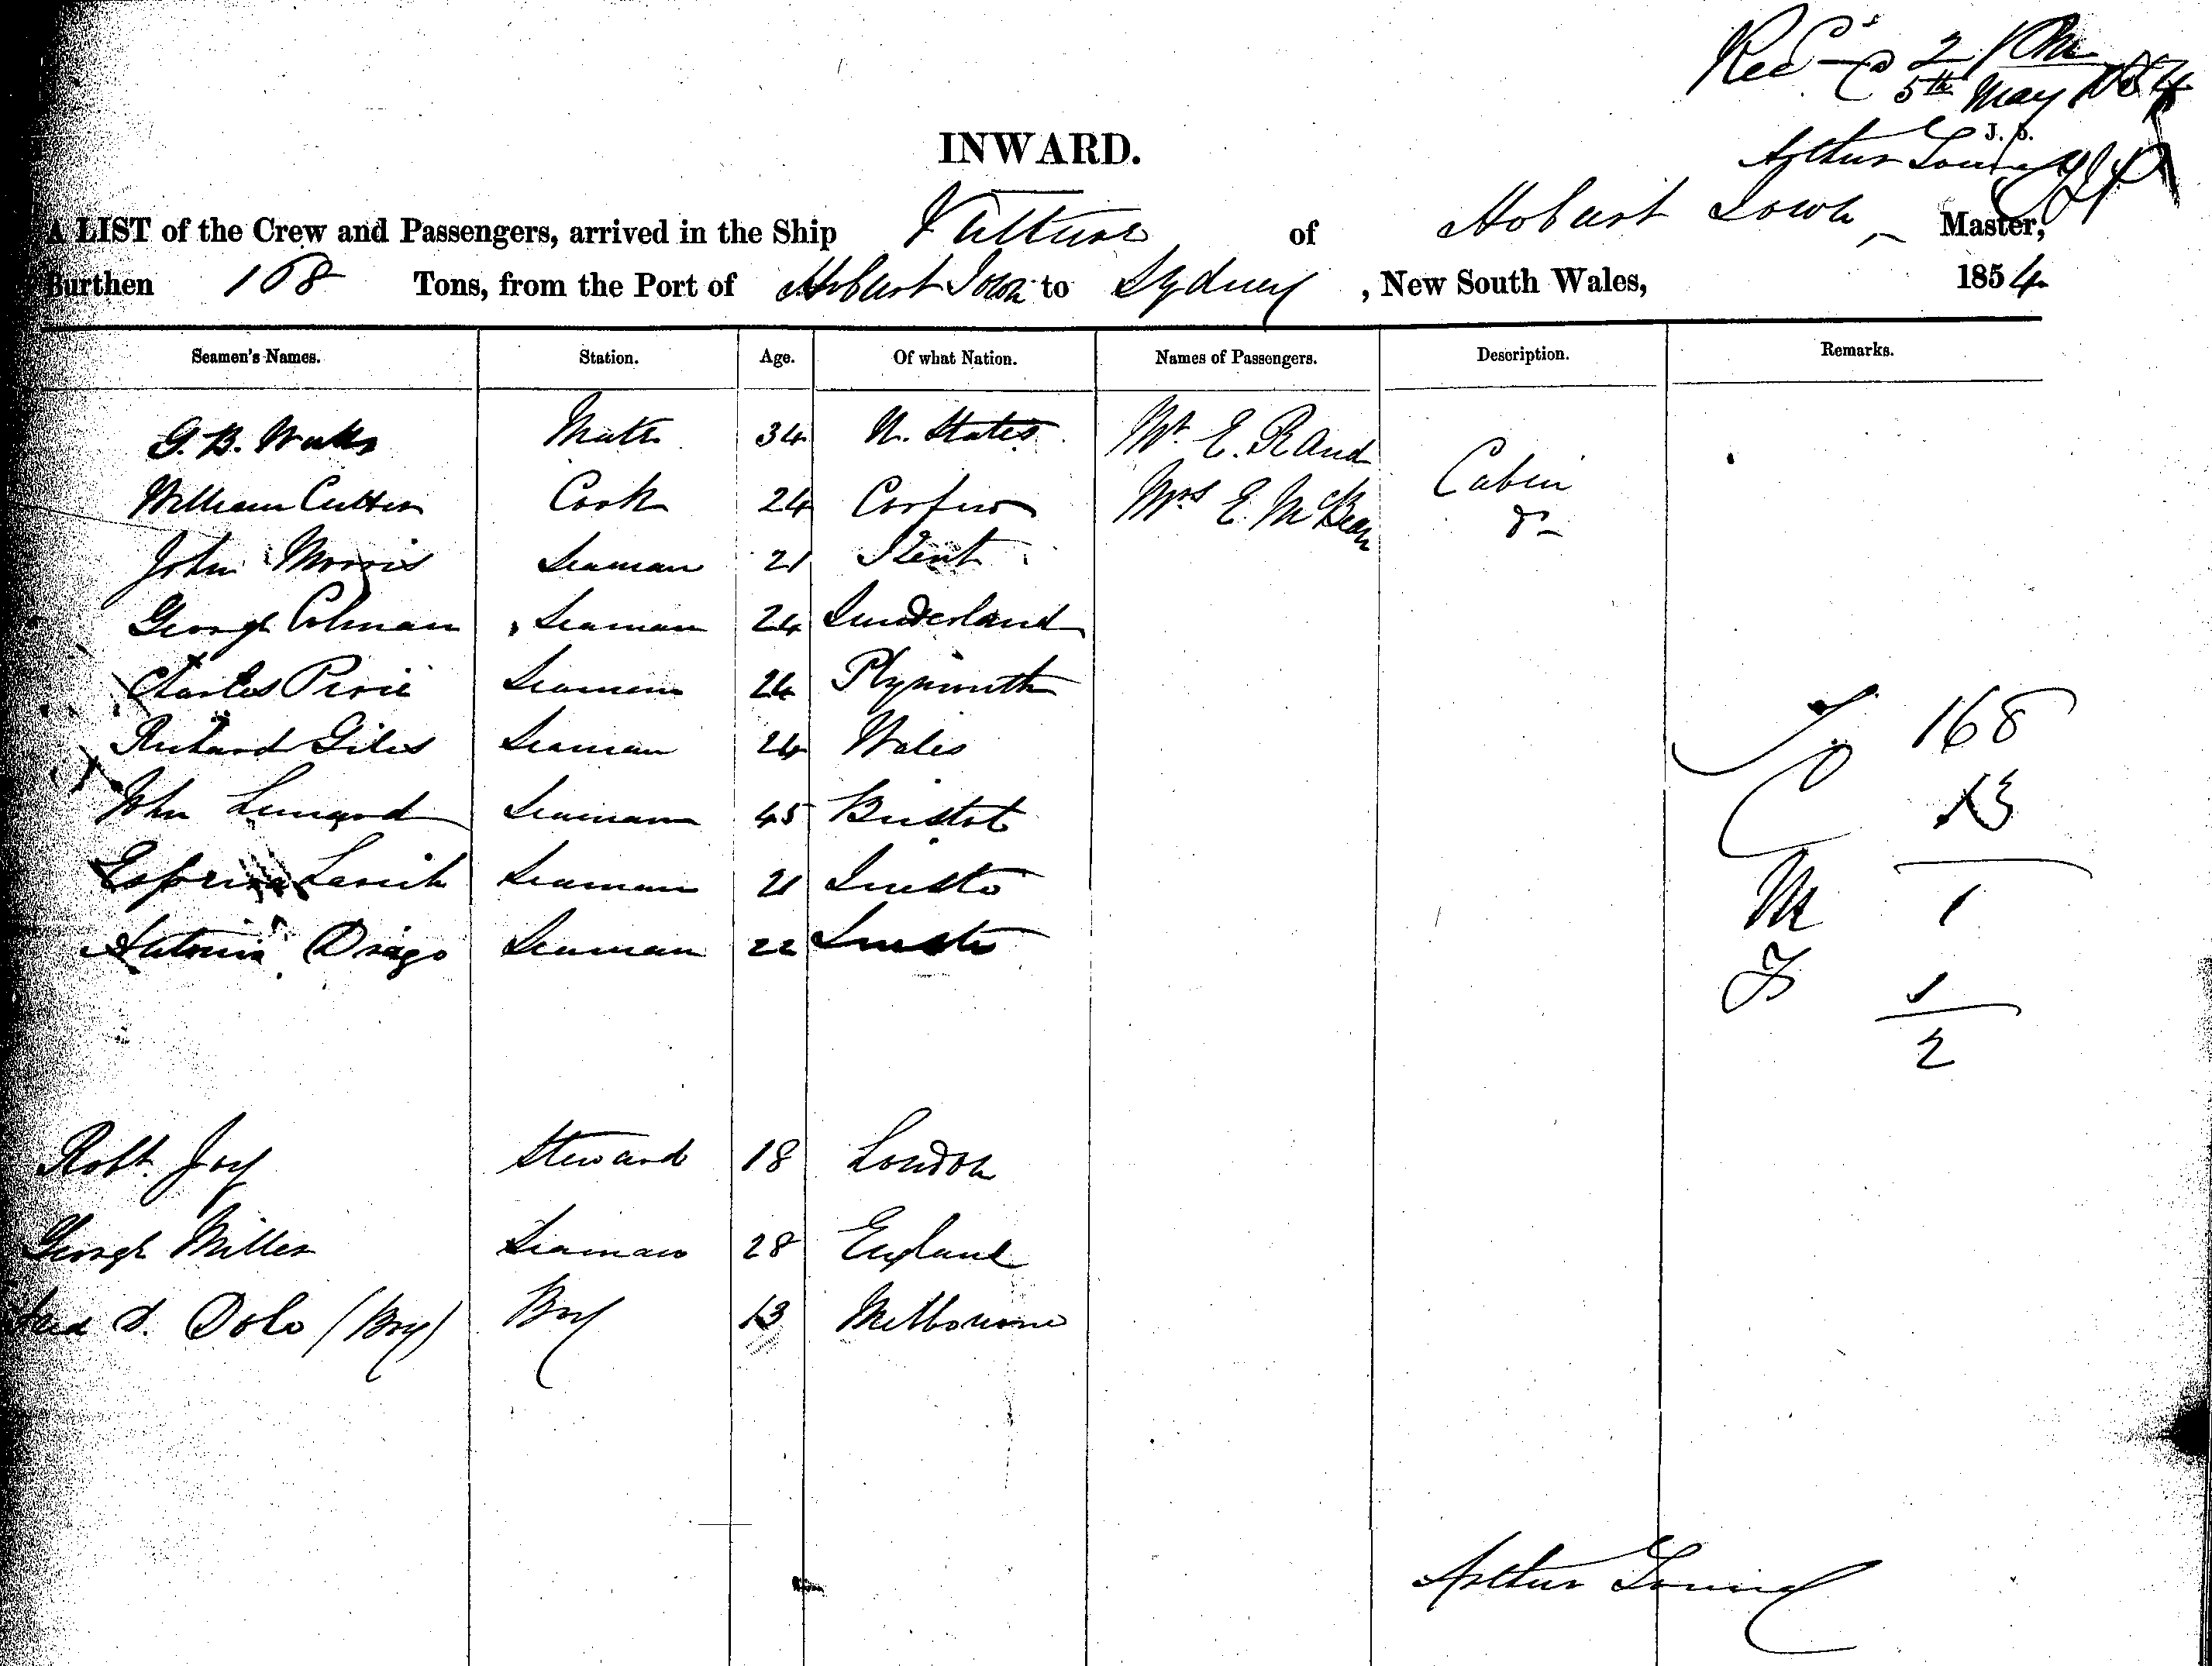 Rec'd 2 PM
5th May 1854
J. S.
Arthur
INWARD.
A LIST of the Crew and Passengers, arrived in the Ship Vulture of Hobart Town, Master,
Burthen 168 Tons, from the Port of Hobart Town to Sydney, New South Wales, 1854
Seamen's Names. Station. Age. Of what Nation. Names of Passengers. Description. Remarks.
G. B. Watts Mate 34 U. States Mr. E. Rand Cabin
William Cutter Cook 24 Corfu Mrs E. McBean Do
John Morris Seaman 21 Kent
George Colman Seaman 24 Sunderland
Charles Pirie Seaman 24 Plymouth
Richard Giles Seaman 24 Wales
T. 168
John Lennard Seaman 45 Bristol
C 13
Lavich Seaman 21
M 1
Antonia Drago Seaman 22
F 1
2
Robt. Joy Steward 18 London
George Miller Seaman 28 England
Dole (Boy) Boy 13 Melbourne
Arthur